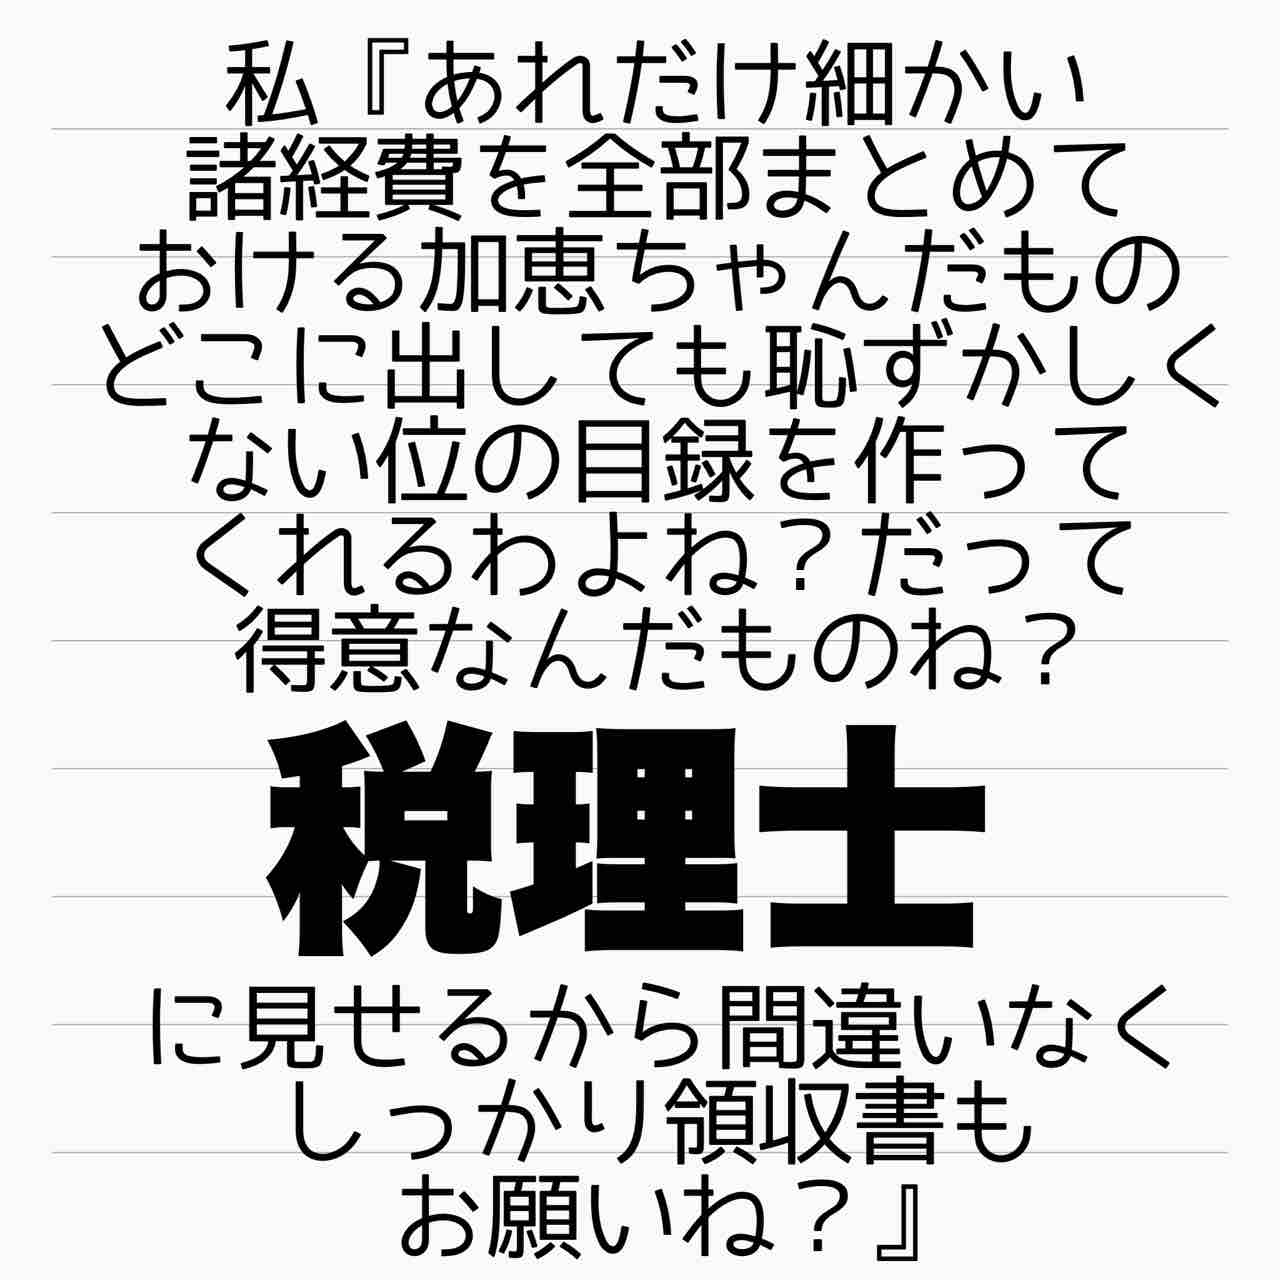 私『あれだけ細かい
諸経費を全部まとめて
おける加恵ちゃんだもの
どこに出しても恥ずかしく
ない位の目録を作って
くれるわよね？だって
得意なんだものね？
税理士
に見せるから間違いなく
しっかり領収書も
お願いね？』